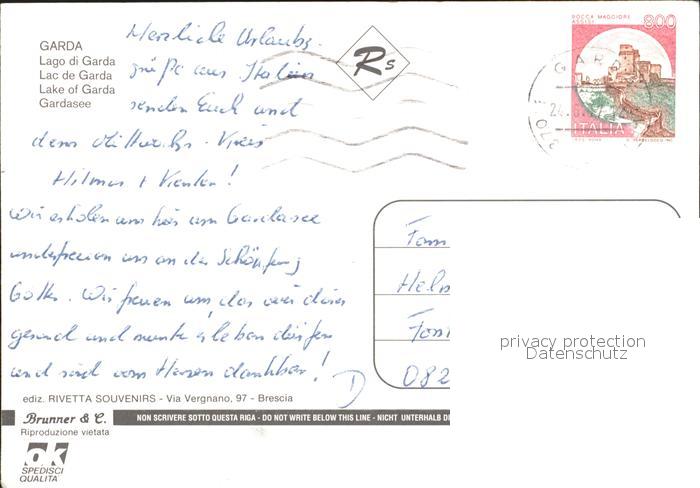 GARDA
Lago di Garda
Lac de Garda
Lake of Garda
Gardasee
Herzliche Urlaubs-
grüße aus Italien
senden Euch und
dem Mittwochs-Kreis
Hilmar +
Wir erholen uns hier am Gardasee
und erfreuen uns an der Schöpfung
Gottes. Wir freuen uns, das wir dies
gesund und munter erleben dürfen
und sind vom Herzen dankbar!
Rs
ROCCA MAGGIORE
ASSISI
800
ITALIA
GARDA
Fam
Helm
082
privacy protection
Datenschutz
ediz. RIVETTA SOUVENIRS - Via Vergnano, 97 - Brescia
Brunner & C.
Riproduzione vietata
NON SCRIVERE SOTTO QUESTA RIGA - DO NOT WRITE BELOW THIS LINE - NICHT UNTERHALB DI
ok
SPEDISCI
QUALITA'